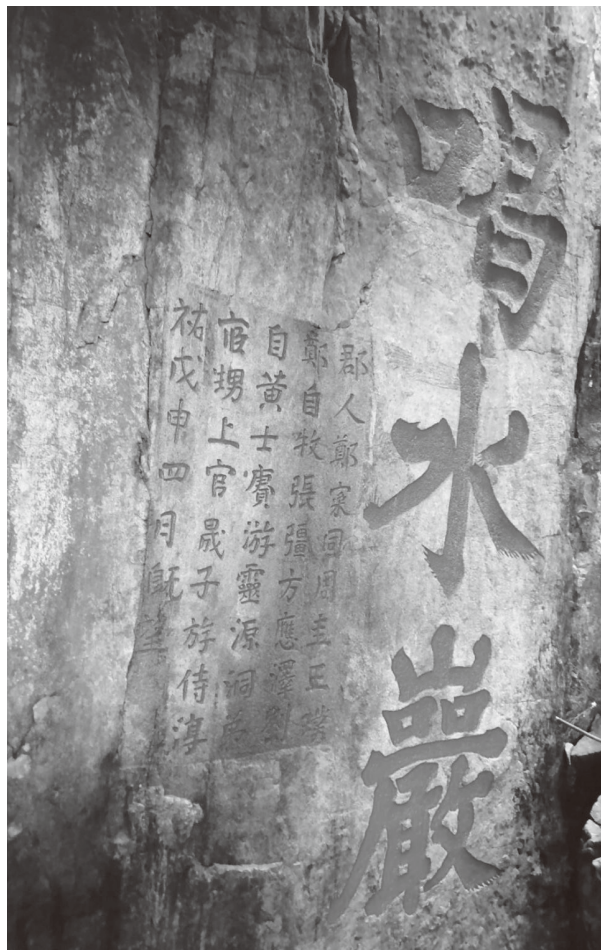 喝水巖
郡人鄭寀同周圭王
鄭自牧張彊方應澤劉
自黃士賡游靈源洞
甥上官晟子斿侍淳
祐戊申四月既望